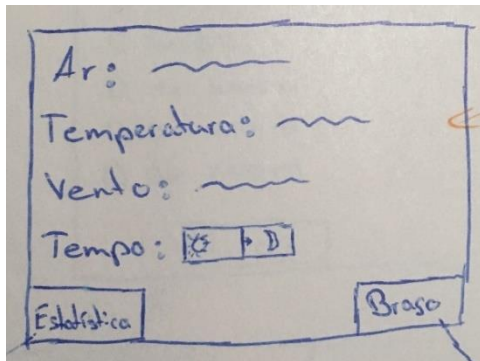 Ar:
Temperatura:
Vento:
Tempo:
Estatística
Braso